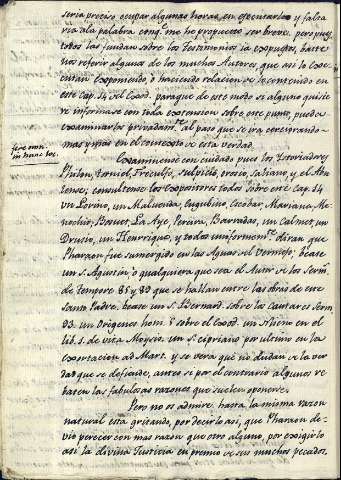 seria preciso ocupar algunas horas en ejecutarlo y falta
ria a la palabra conq. me he propuesto ser breve. pero pues
todos las fundan sobre los testimonios ia expuestos, baste
no referir alguno de los muchos Autores, que asi lo exe
cutan exponiendo, o haciendo relacion de lo contenido en
este cap. 14 del Exod. para que de este modo si alguno quisie
re informarse con toda extension sobre este punto, pueda
examinarlos privadam.te al paso que se ira cerciorando
mas y mas en el concepto de esta verdad.
fere omn.
in hunc loc.
Examinense con cuidado pues los Istoriadores
Philon, Torniel, Freculfo, Sulpicio, orosio, Saliano, y el Abu
lense; consultense los Expositores todos sobre este cap. 14
un Lorino, un Malvenda, Eugubino, Escobar, Mariana, Me
nochio, Bosuet, La Aye, Pereira, Barradas, un Calmet, un
Drusio, un Henrriquez, y todos uniformem.te diran que
Pharaon fue sumergido en las Aguas del vermejo; vease
un S. Agustin, o qualquiera que sea el Autor de los Serm.
de tempore 85 y 89 que se hallan entre las obras de este
Santo Padre, vease un S. Bernard. sobre los cantares Serm
39. un Origenes hom. 6 sobre el Exod. un Niseno en el
lib. de vita Moysis, un S. cipriano por ultimo en la
exortacion ad Mart. y se vera que no dudan de la ver
dad que se defiende, antes si por el contrario algunos re
baten las fabulosas razones que suelen oponerse.
Pero no os admire, hasta la misma razon
natural esta gritando, por decirlo asi, que Pharaon de
vio perecer con mas razon que otro alguno, por exigirlo
asi la divina Justicia en premio de sus muchos pecados.